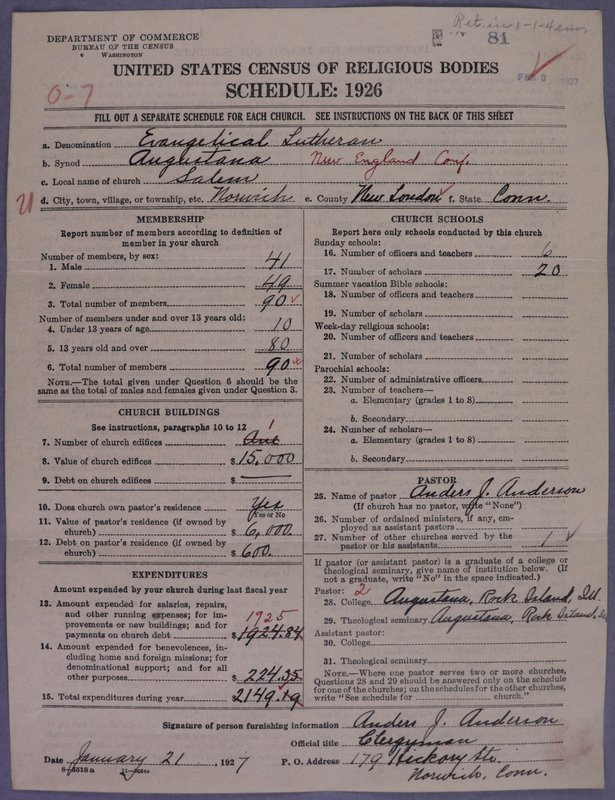 Ret. in 1-1-4
81
DEPARTMENT OF COMMERCE
BUREAU OF THE CENSUS
WASHINGTON
FEB 1927
UNITED STATES CENSUS OF RELIGIOUS BODIES
0-7
SCHEDULE: 1926
FILL OUT A SEPARATE SCHEDULE FOR EACH CHURCH. SEE INSTRUCTIONS ON THE BACK OF THIS SHEET
a. Denomination Evangelical Lutheran
b. Synod Augustana New England Conf.
c. Local name of church Salem
d. City, town, village, or township, etc. Norwich e. County New London f. State Conn.
MEMBERSHIP
Report number of members according to definition of
member in your church
Number of members, by sex:
1. Male 41
2. Female 49
3. Total number of members 90
Number of members under and over 13 years old:
4. Under 13 years of age 10
5. 13 years old and over 80
6. Total number of members 90
NOTE.—The total given under Question 6 should be the
same as the total of males and females given under Question 3.
CHURCH BUILDINGS
See instructions, paragraphs 10 to 12
7. Number of church edifices 1
8. Value of church edifices $15,000
9. Debt on church edifices $
10. Does church own pastor's residence Yes
Yes or No
11. Value of pastor's residence (if owned by
church) $6,000.
12. Debt on pastor's residence (if owned by
church) $600.
EXPENDITURES
Amount expended by your church during last fiscal year
13. Amount expended for salaries, repairs,
and other running expenses; for im-
provements or new buildings; and for
payments on church debt 1925 $1924.84
14. Amount expended for benevolences, in-
cluding home and foreign missions; for
denominational support; and for all
other purposes $224.35
15. Total expenditures during year 2149.19
CHURCH SCHOOLS
Report here only schools conducted by this church
Sunday schools:
16. Number of officers and teachers 6
17. Number of scholars 20
Summer vacation Bible schools:
18. Number of officers and teachers
19. Number of scholars
Week-day religious schools:
20. Number of officers and teachers
21. Number of scholars
Parochial schools:
22. Number of administrative officers
23. Number of teachers—
a. Elementary (grades 1 to 8)
b. Secondary
24. Number of scholars—
a. Elementary (grades 1 to 8)
b. Secondary
PASTOR
25. Name of pastor Anders J. Anderson
(If church has no pastor, write "None")
26. Number of ordained ministers, if any, em-
ployed as assistant pastors
27. Number of other churches served by the
pastor or his assistants 1
If pastor (or assistant pastor) is a graduate of a college or
theological seminary, give name of institution below. (If
not a graduate, write "No" in the space indicated.)
Pastor: 2
28. College Augustana, Rock Island, Ill.
29. Theological seminary Augustana, Rock Island, Ill
Assistant pastor:
30. College
31. Theological seminary
NOTE.—Where one pastor serves two or more churches,
Questions 28 and 29 should be answered only on the schedule
for one of the churches; on the schedules for the other churches,
write "See schedule for church."
Signature of person furnishing information Anders J. Anderson
Official title Clergyman
Date January 21, 1927 P. O. Address 179 Hickory Str.
8-5518a Norwich, Conn.